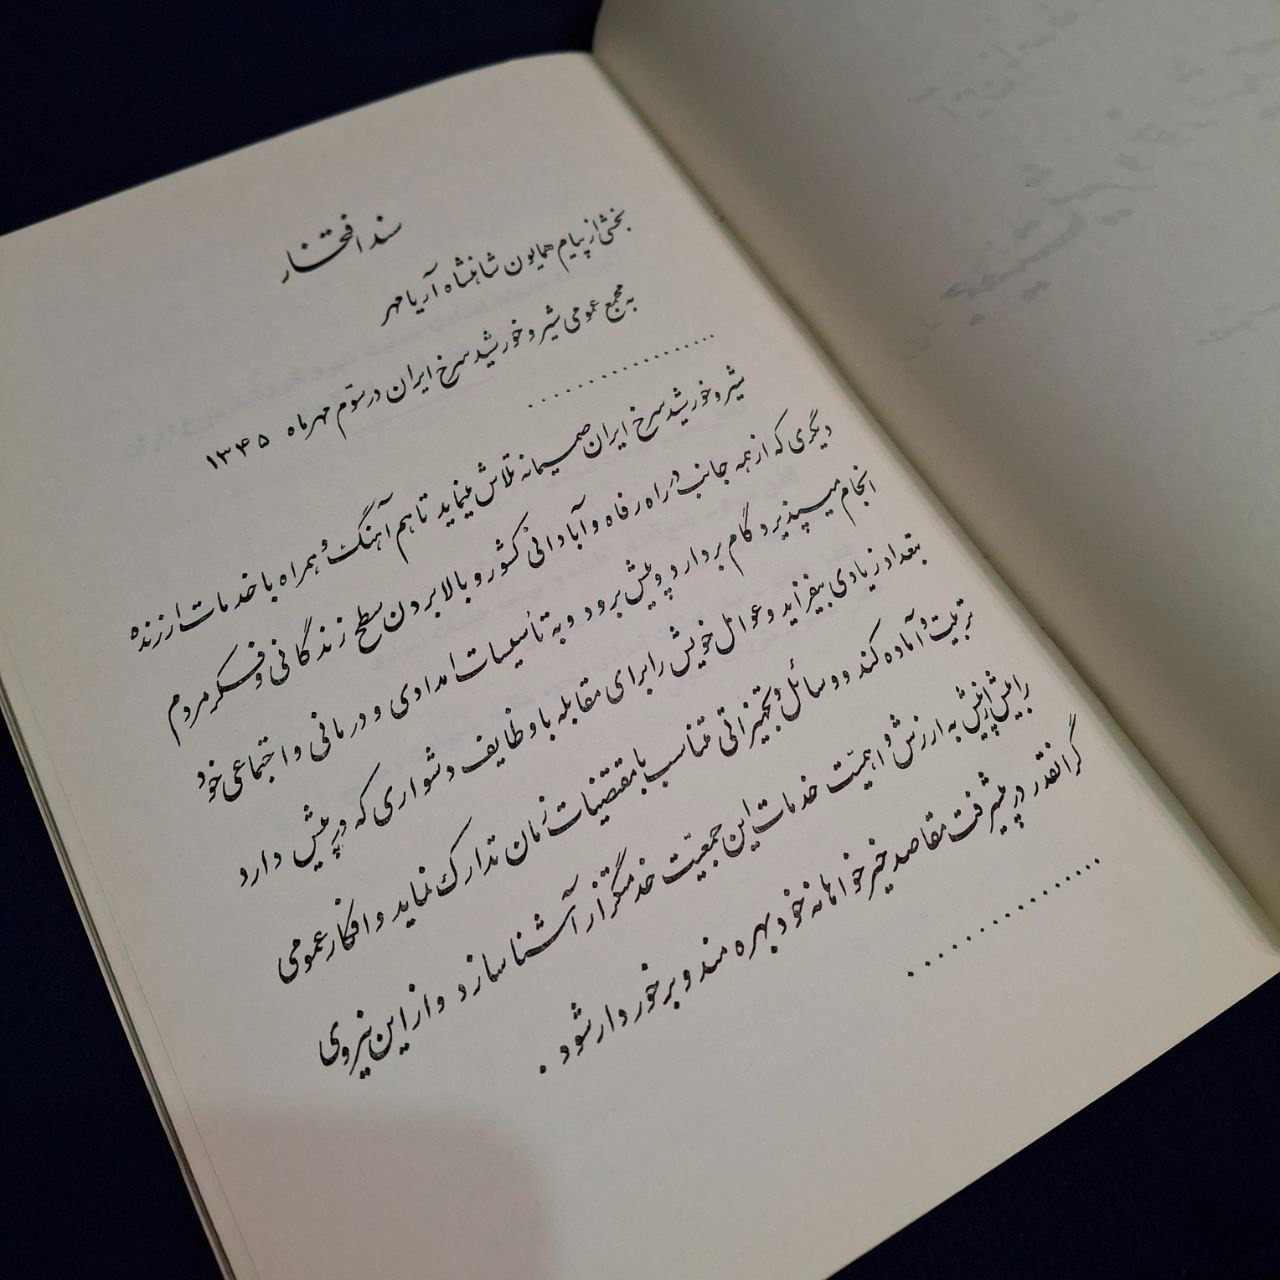 سند افتخار
بخشی از پیام همایون شاهنشاه آریامهر
به مجمع عمومی شیر و خورشید سرخ ایران در سوّم مهرماه ۱۳۴۵
..................
شیر و خورشید سرخ ایران صمیمانه تلاش مینماید تا هم آهنگ و همراه با خدمات ارزنده
دیگری که از همه جانب در راه رفاه و آبادانی کشور و بالا بردن سطح زندگانی و فکر مردم
انجام میپذیرد گام بردارد و پیش برود و به تأسیسات امدادی و درمانی و اجتماعی خود
بتعداد زیادی بیفزاید و عوامل خویش را برای مقابله با وظایف دشواری که در پیش دارد
تربیت و آماده کند و وسائل و تجهیزاتی متناسب با مقتضیات زمان تدارک نماید و افکار عمومی
را بیش از پیش به ارزش و اهمیّت خدمات این جمعیّت خدمتگزار آشنا سازد و از این نیروی
گرانقدر در پیشرفت مقاصد خیرخواهانه خود بهره مند و برخوردار شود .
..................